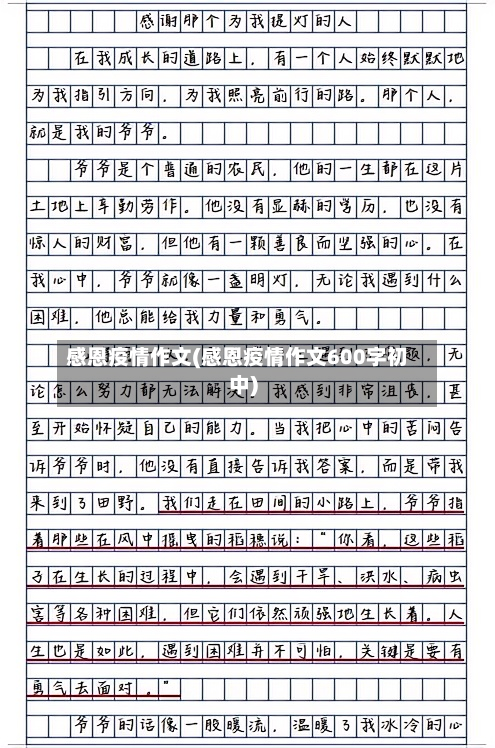 感谢那个为我提灯的人
在我成长的道路上，有一个人始终默默地
为我指引方向，为我照亮前行的路。那个人，
就是我的爷爷。
爷爷是个普通的农民，他的一生都在这片
土地上辛勤劳作。他没有显赫的学历，也没有
惊人的财富，但他有一颗善良而坚强的心。在
我心中，爷爷就像一盏明灯，无论我遇到什么
困难，他总能给我力量和勇气。
感恩疫情作文(感恩疫情作文600字初
中)
题，无
论怎么努力都无法解决。我感到非常沮丧，甚
至开始怀疑自己的能力。当我把心中的苦闷告
诉爷爷时，他没有直接告诉我答案，而是带我
来到了田野。我们走在田间的小路上，爷爷指
着那些在风中摇曳的稻穗说："你看，这些稻
子在生长的过程中，会遇到干旱、洪水、病虫
害等各种困难，但它们依然顽强地生长着。人
生也是如此，遇到困难并不可怕，关键是要有
勇气去面对。"
爷爷的话像一股暖流，温暖了我冰冷的心